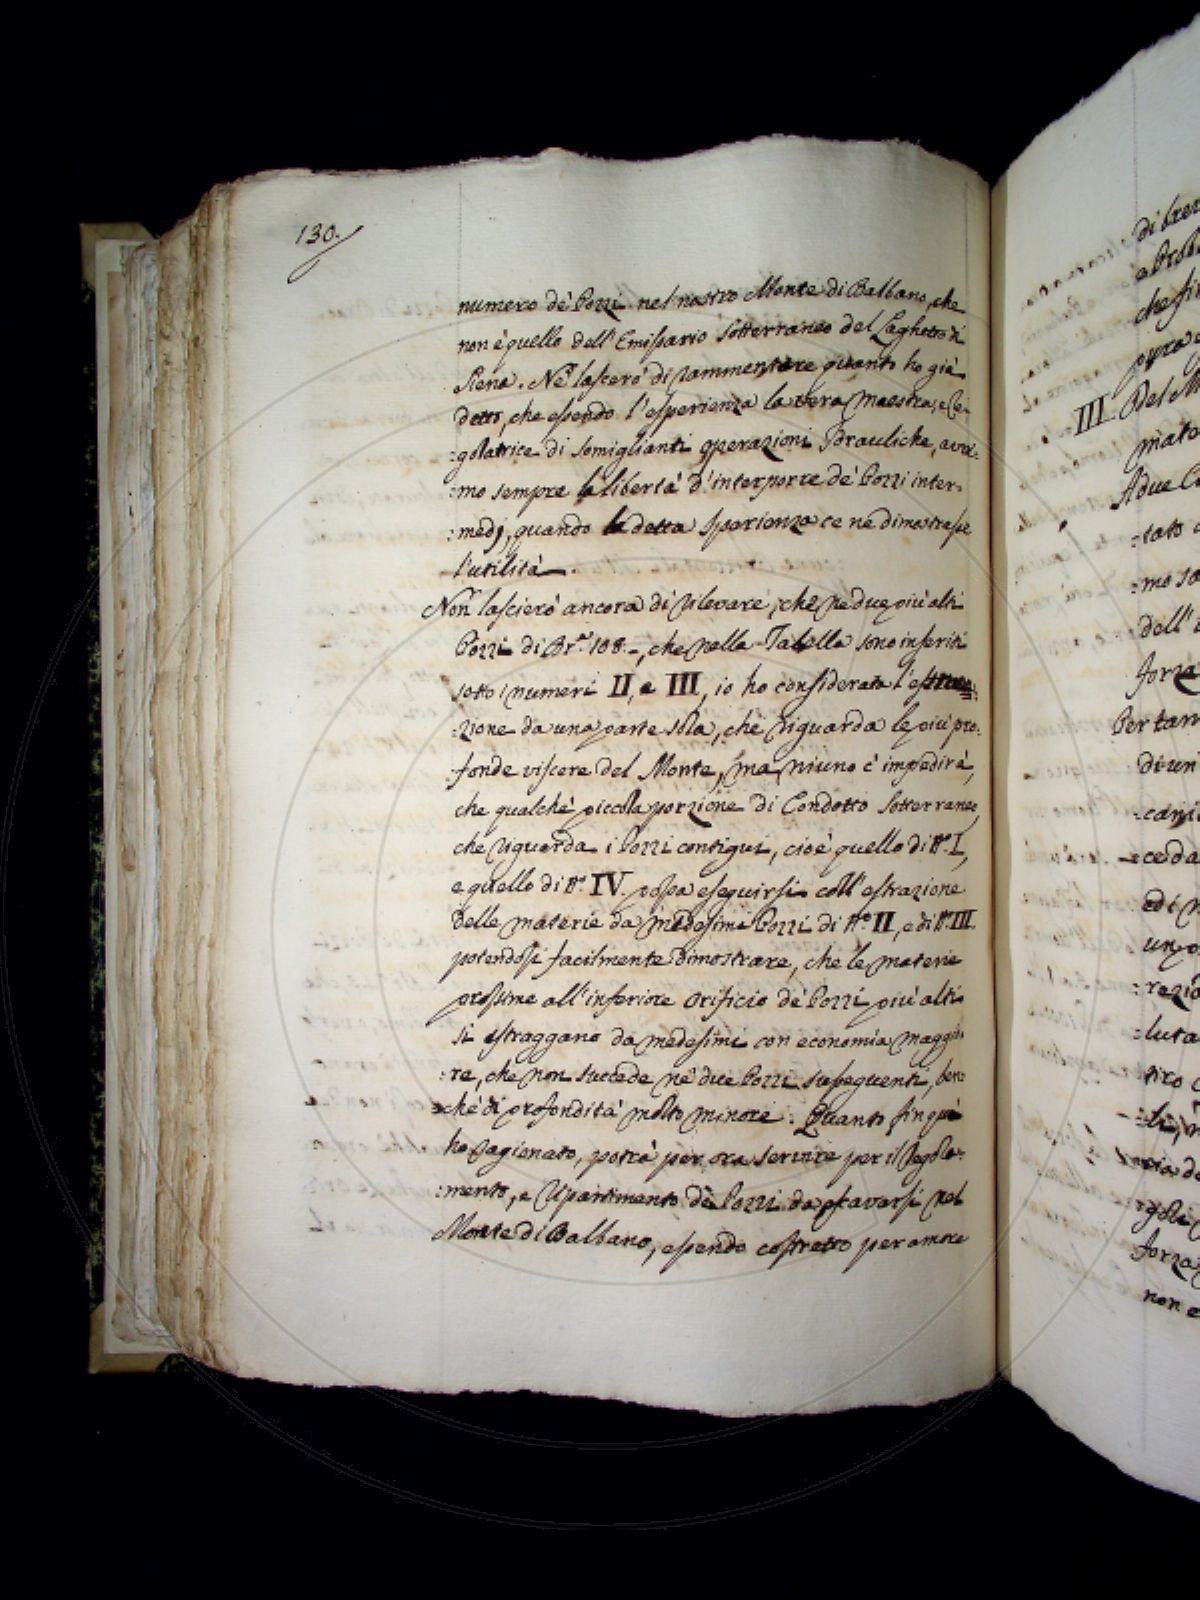 130.
numero de' Pozzi nel nostro Monte di Balbano, che
non è quello dell'Emissario sotterraneo del Laghetto di
Siena. Ne lascerò di rammentare quanto ho già
detto, che essendo l'esperienza la vera Maestra, e Re-
:golatrice di somiglianti operazioni Idrauliche, avre:
:mo sempre la libertà d'interporre de' Pozzi inter-
:medj, quando la detta sperienza ce ne dimostrasse
l'utilità.
Non lascierò ancora di rilevare, che ne due più alti
Pozzi di Br.a 108.-, che nella Tabella sono inseriti
sotto i numeri II, e III, io ho considerato l'estra:
:zione da una parte sola, che riguarda le più pro:
:fonde viscere del Monte, ma niuno c'impedirà,
che qualche piccola porzione di Condotto sotterraneo,
che riguarda i Pozzi contigui, cioè quello di N.o I,
e quello di N.o IV. possa eseguirsi coll'estrazione
delle materie da medesimi Pozzi di N.o II, e di N.o III.
potendosi facilmente dimostrare, che le materie
prossime all'inferiore orificio de' Pozzi più alti
si estraggano da medesimi con economia maggio:
:re, che non succede ne' due Pozzi susseguenti, ben:
:chè di profondità molto minore. Quanto fin quì
ho ragionato, potrà per ora servire per il Regola:
:mento, e ripartimento de' Pozzi da scavarsi nel
Monte di Balbano, essendo costretto per amore
e Prob
che
III. Del M
mato
A due
:tato
:mo so
dell'
forza
Per tan
di un
:ceda
ed i
:razio
:luta
tiro
forza
non e